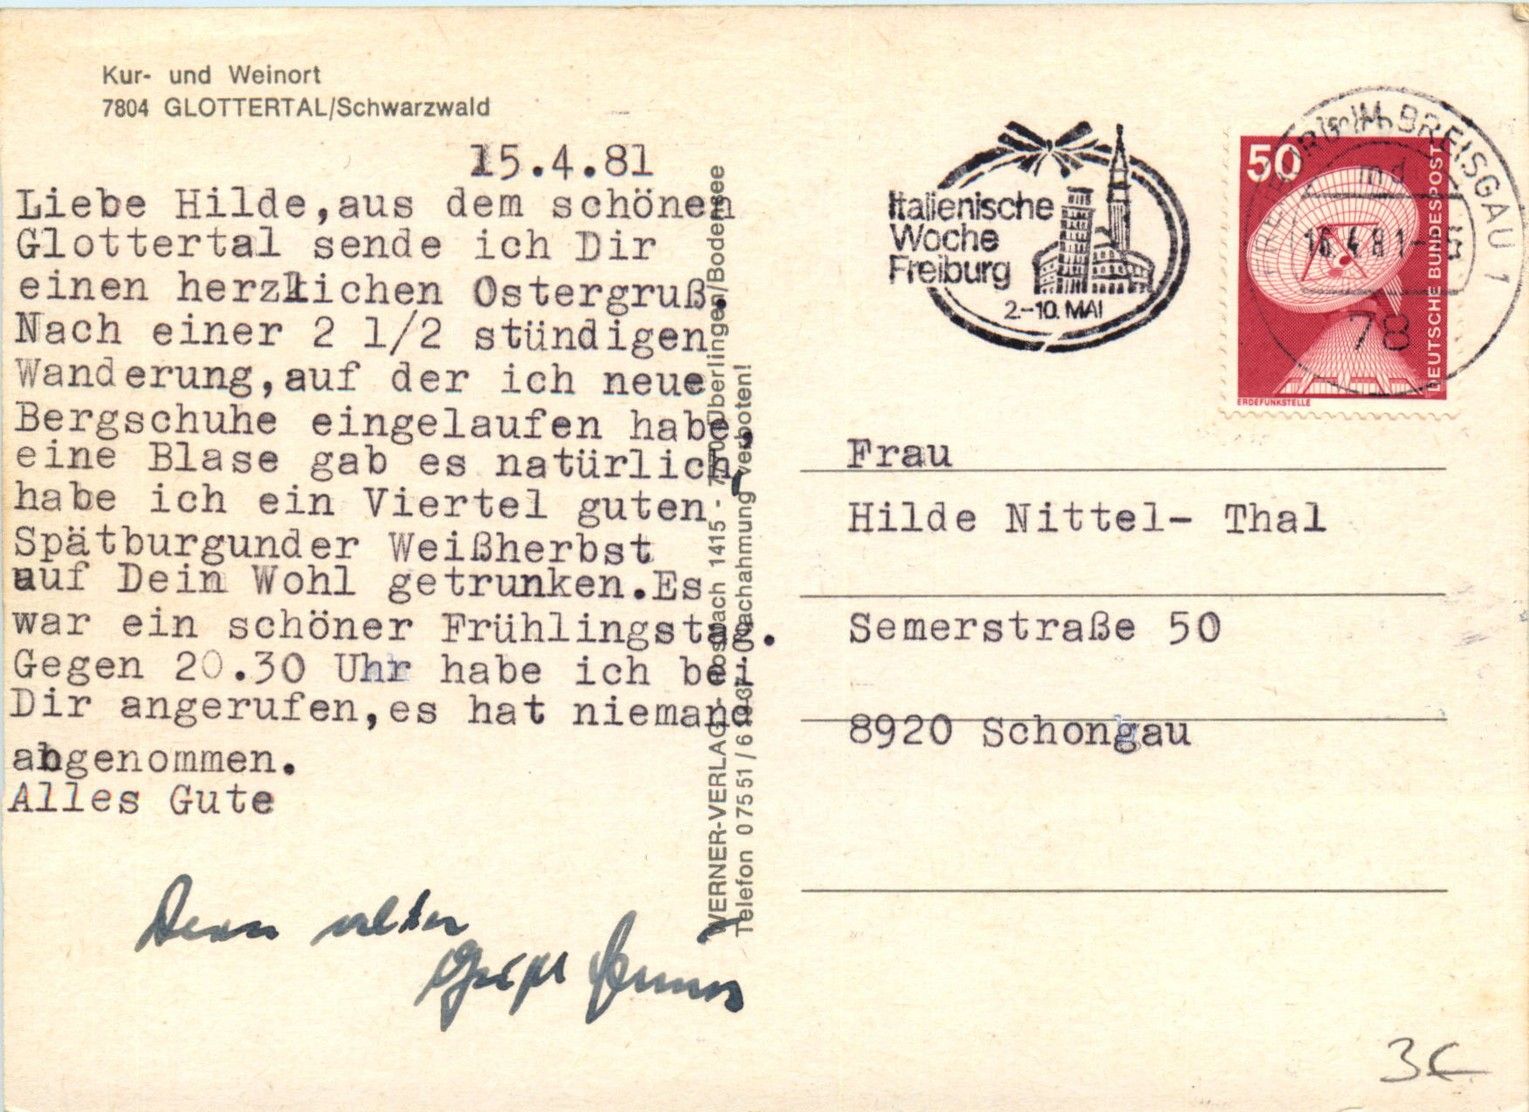 Kur- und Weinort
7804 GLOTTERTAL/Schwarzwald
15.4.81
Liebe Hilde,aus dem schönen
Glottertal sende ich Dir
einen herzlichen Ostergruß.
Nach einer 2 1/2 stündigen
Wanderung,auf der ich neue
Bergschuhe eingelaufen habe,
eine Blase gab es natürlich,
habe ich ein Viertel guten
Spätburgunder Weißherbst
auf Dein Wohl getrunken.Es
war ein schöner Frühlingstag.
Gegen 20.30 Uhr habe ich bei
Dir angerufen,es hat niemand
abgenommen.
Alles Gute
Dein alter
WERNER-VERLAG - Postfach 1415 - 7770 Überlingen/Bodensee
Telefon 07551/ Nachahmung verboten!
Italienische
Woche
Freiburg
2.-10. MAI
FREIBURG IM BREISGAU 1
16.4.81
78
50
DEUTSCHE BUNDESPOST
ERDEFUNKSTELLE
Frau
Hilde Nittel- Thal
Semerstraße 50
8920 Schongau
3€